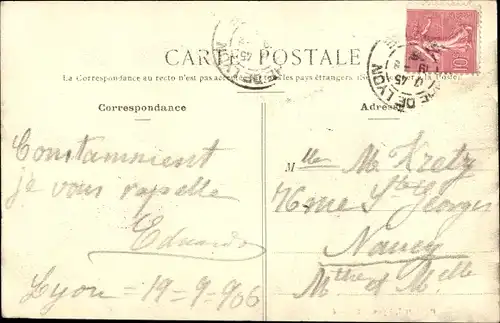 CARTE POSTALE
La Correspondance au recto n'est pas acceptée par tous les pays étrangers. à la Poste.
Correspondance
Adresse
Constamment
je vous rapelle
Eduardo
Lyon - 19-9-906
Mlle M. Kretz
Rue St Georges
Nancy
Mthe et Melle
GARE DE LYON
10